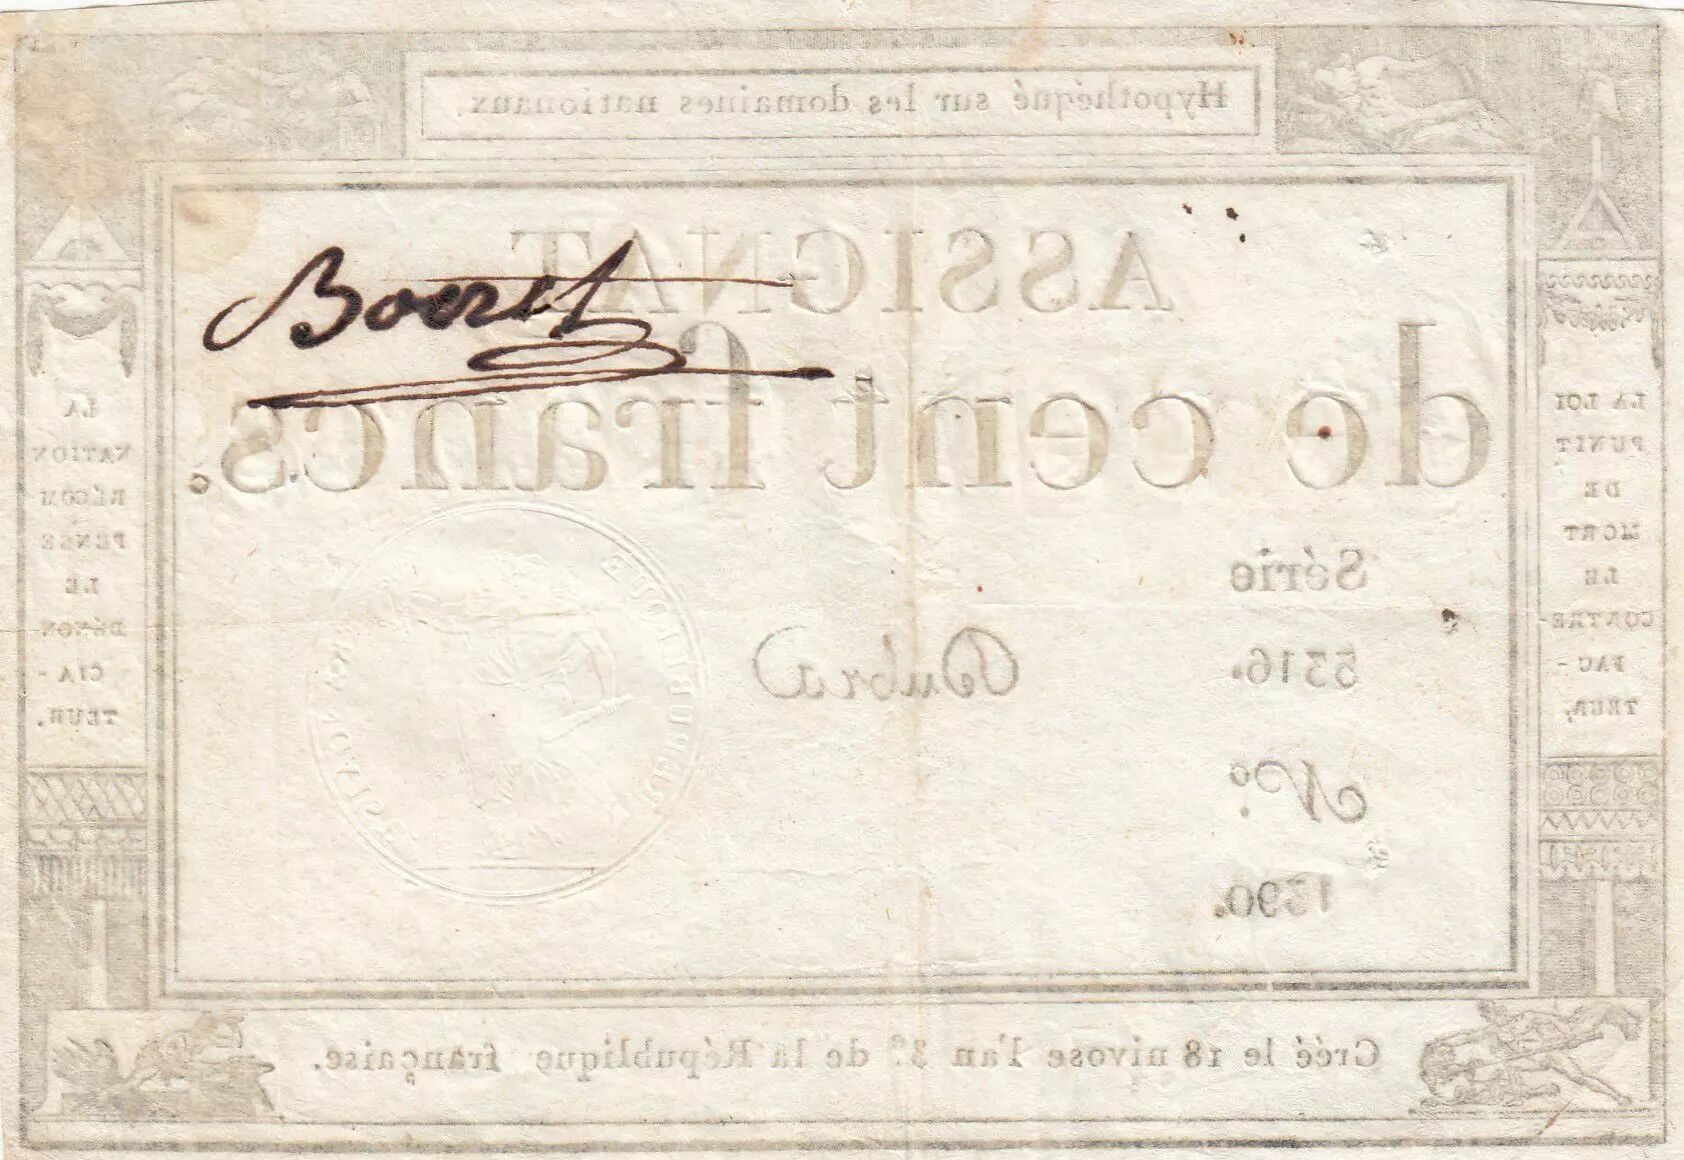 Hypothéqué sur les domaines nationaux.
ASSIGNAT
Boeret
de cent francs.
Série
5316.
Dubra
N.º
1390.
LA LOI
PUNIT
DE
MORT
LE
CONTRE-
FAC -
TEUR,
LA
NATION
RÉCOM-
PENSE
LE
DÉNON-
CIA -
TEUR.
Créé le 18 nivose l'an 3.e de la République française.